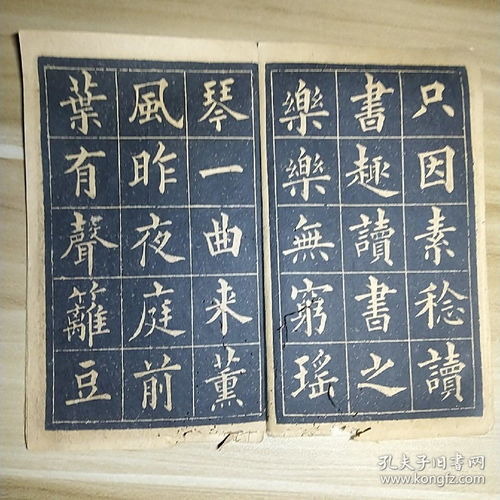 只因素稔讀
書趣讀書之
樂樂無窮瑤
琴一曲来薰
風昨夜庭前
葉有聲籬豆
孔夫子旧书网
www.kongfz.com